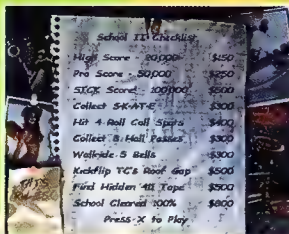 School II Checklist
High Score - 20,000 $150
Pro Score - 50,000 $250
SICK Score! 100,000 $500
Collect S-K-A-T-E $300
Hit 4 Roll Call Spots $400
Collect 8 Hall Passes $300
Wallride 5 Bells $300
Kickflip TC's Roof Gap $500
Find Hidden 411 Tape $500
School Cleared 100% $800
Press X to Play